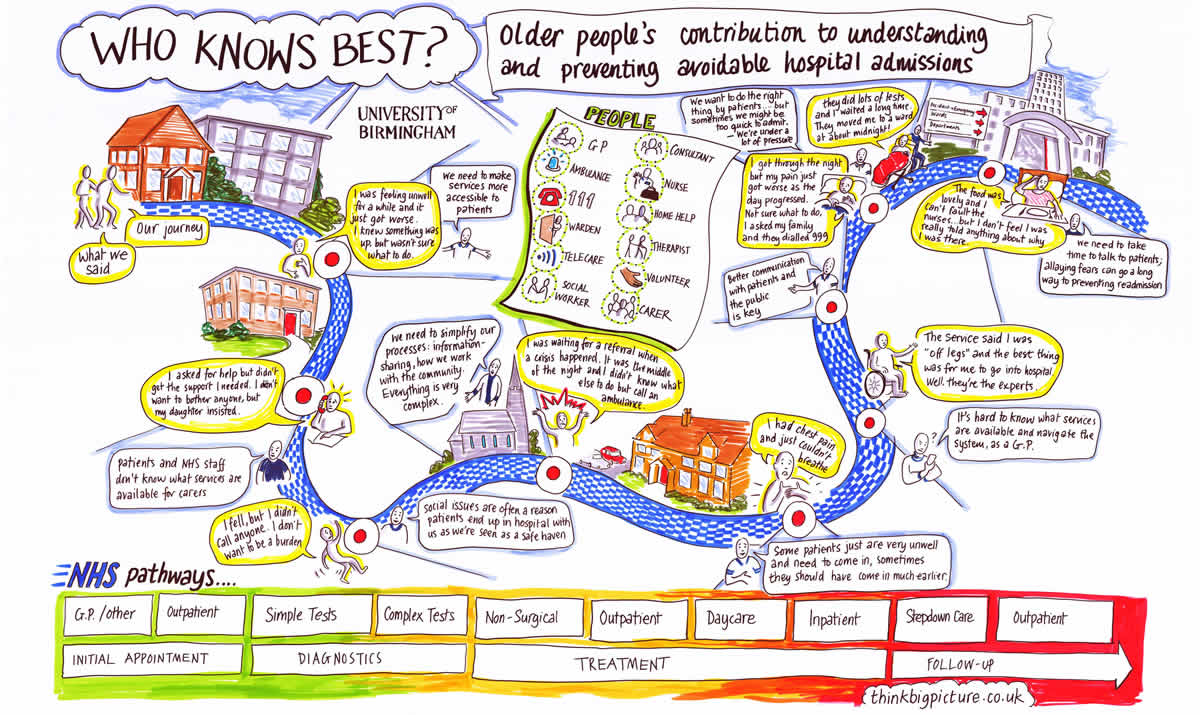 WHO KNOWS BEST?
Older people's contribution to understanding
and preventing avoidable hospital admissions
UNIVERSITY OF
BIRMINGHAM
PEOPLE
G.P
AMBULANCE
111
WARDEN
TELECARE
SOCIAL
WORKER
CONSULTANT
NURSE
HOME HELP
THERAPIST
VOLUNTEER
CARER
Our journey
What we
said
I was feeling unwell
for a while and it
just got worse.
I knew something was
up, but wasn't sure
what to do.
We need to make
services more
accessible to
patients
I asked for help but didn't
get the support I needed. I don't
want to bother anyone, but
my daughter insisted.
patients and NHS staff
don't know what services are
available for carers
I fell, but I didn't
call anyone. I don't
want to be a burden
Social issues are often a reason
patients end up in hospital with
us as we're seen as a safe haven
We need to simplify our
processes: information-
sharing, how we work
with the community.
Everything is very
complex.
I was waiting for a referral when
a crisis happened. It was the middle
of the night and I didn't know what
else to do but call an
ambulance.
I had chest pain
and just couldn't
breathe
Some patients just are very unwell
and need to come in, sometimes
they should have come in much earlier.
It's hard to know what services
are available and navigate the
system, as a G.P.
The service said I was
"off legs" and the best thing
was for me to go into hospital.
Well, they're the experts.
Better communication
with patients and
the public
is key
I got through the night
but my pain just
got worse as the
day progressed.
Not sure what to do,
I asked my family
and they dialled 999
We want to do the right
thing by patients... but
sometimes we might be
too quick to admit.
- We're under a
lot of pressure
they did lots of tests
and I waited a long time.
They moved me to a ward
at about midnight!
Accident + Emergency
Wards
Departments
The food was
lovely and I
can't fault the
nurses...but I don't feel I was
really told anything about why
I was there.
We need to take
time to talk to patients;
allaying fears can go a long
way to preventing readmission
NHS pathways....
G.P. /other
Outpatient
Simple Tests
Complex Tests
Non-Surgical
Outpatient
Daycare
Inpatient
Stepdown Care
Outpatient
INITIAL APPOINTMENT
DIAGNOSTICS
TREATMENT
FOLLOW-UP
thinkbigpicture.co.uk